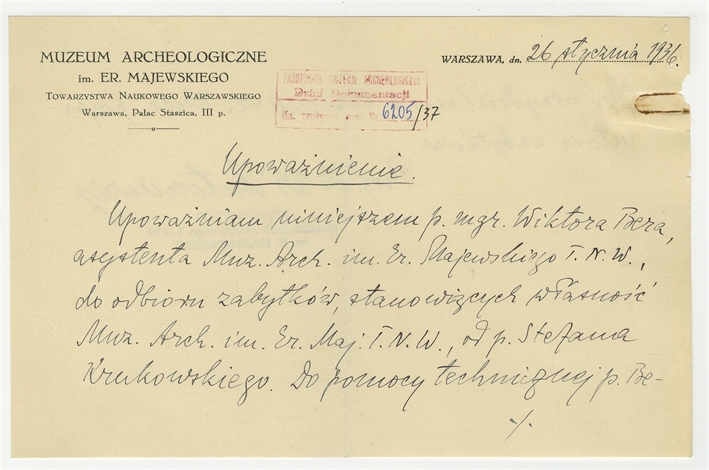 MUZEUM ARCHEOLOGICZNE
im. ER. MAJEWSKIEGO
TOWARZYSTWA NAUKOWEGO WARSZAWSKIEGO
Warszawa, Pałac Staszica, III p.
WARSZAWA, dn. 26 stycznia 1936.
PAŃSTWOWE MUZEUM ARCHEOLOGICZNE
Dział Dokumentacji
6205/37
Upoważnienie.
Upoważniam niniejszem p. mgr. Wiktora Bera,
asystenta Muz. Arch. im. Er. Majewskiego T. N. W.,
do odbioru zabytków, stanowiących własność
Muz. Arch. im. Er. Maj. T. N. W., od p. Stefana
Krukowskiego. Do pomocy technicznej p. Be-
./.